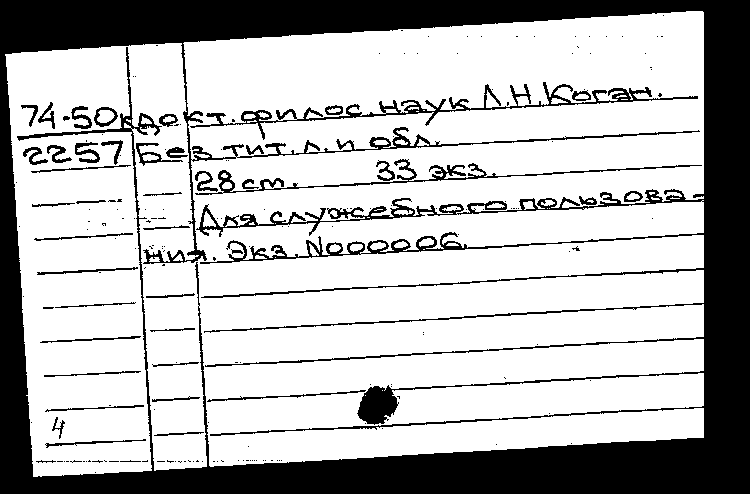 74-50к докт. филос. наук Л.Н. Коган.
2257 Без тит. л. и обл.
28 см. 33 экз.
Для служебного пользова-
ния. Экз. N000006.
4